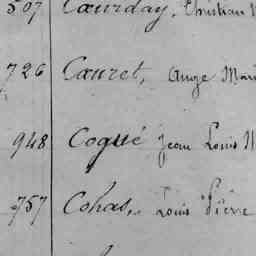 507 Cœurday, Christian
726 Cauret, Ange Marie
948 Cogué Jean Louis M
757 Cohas, Louis Pierre